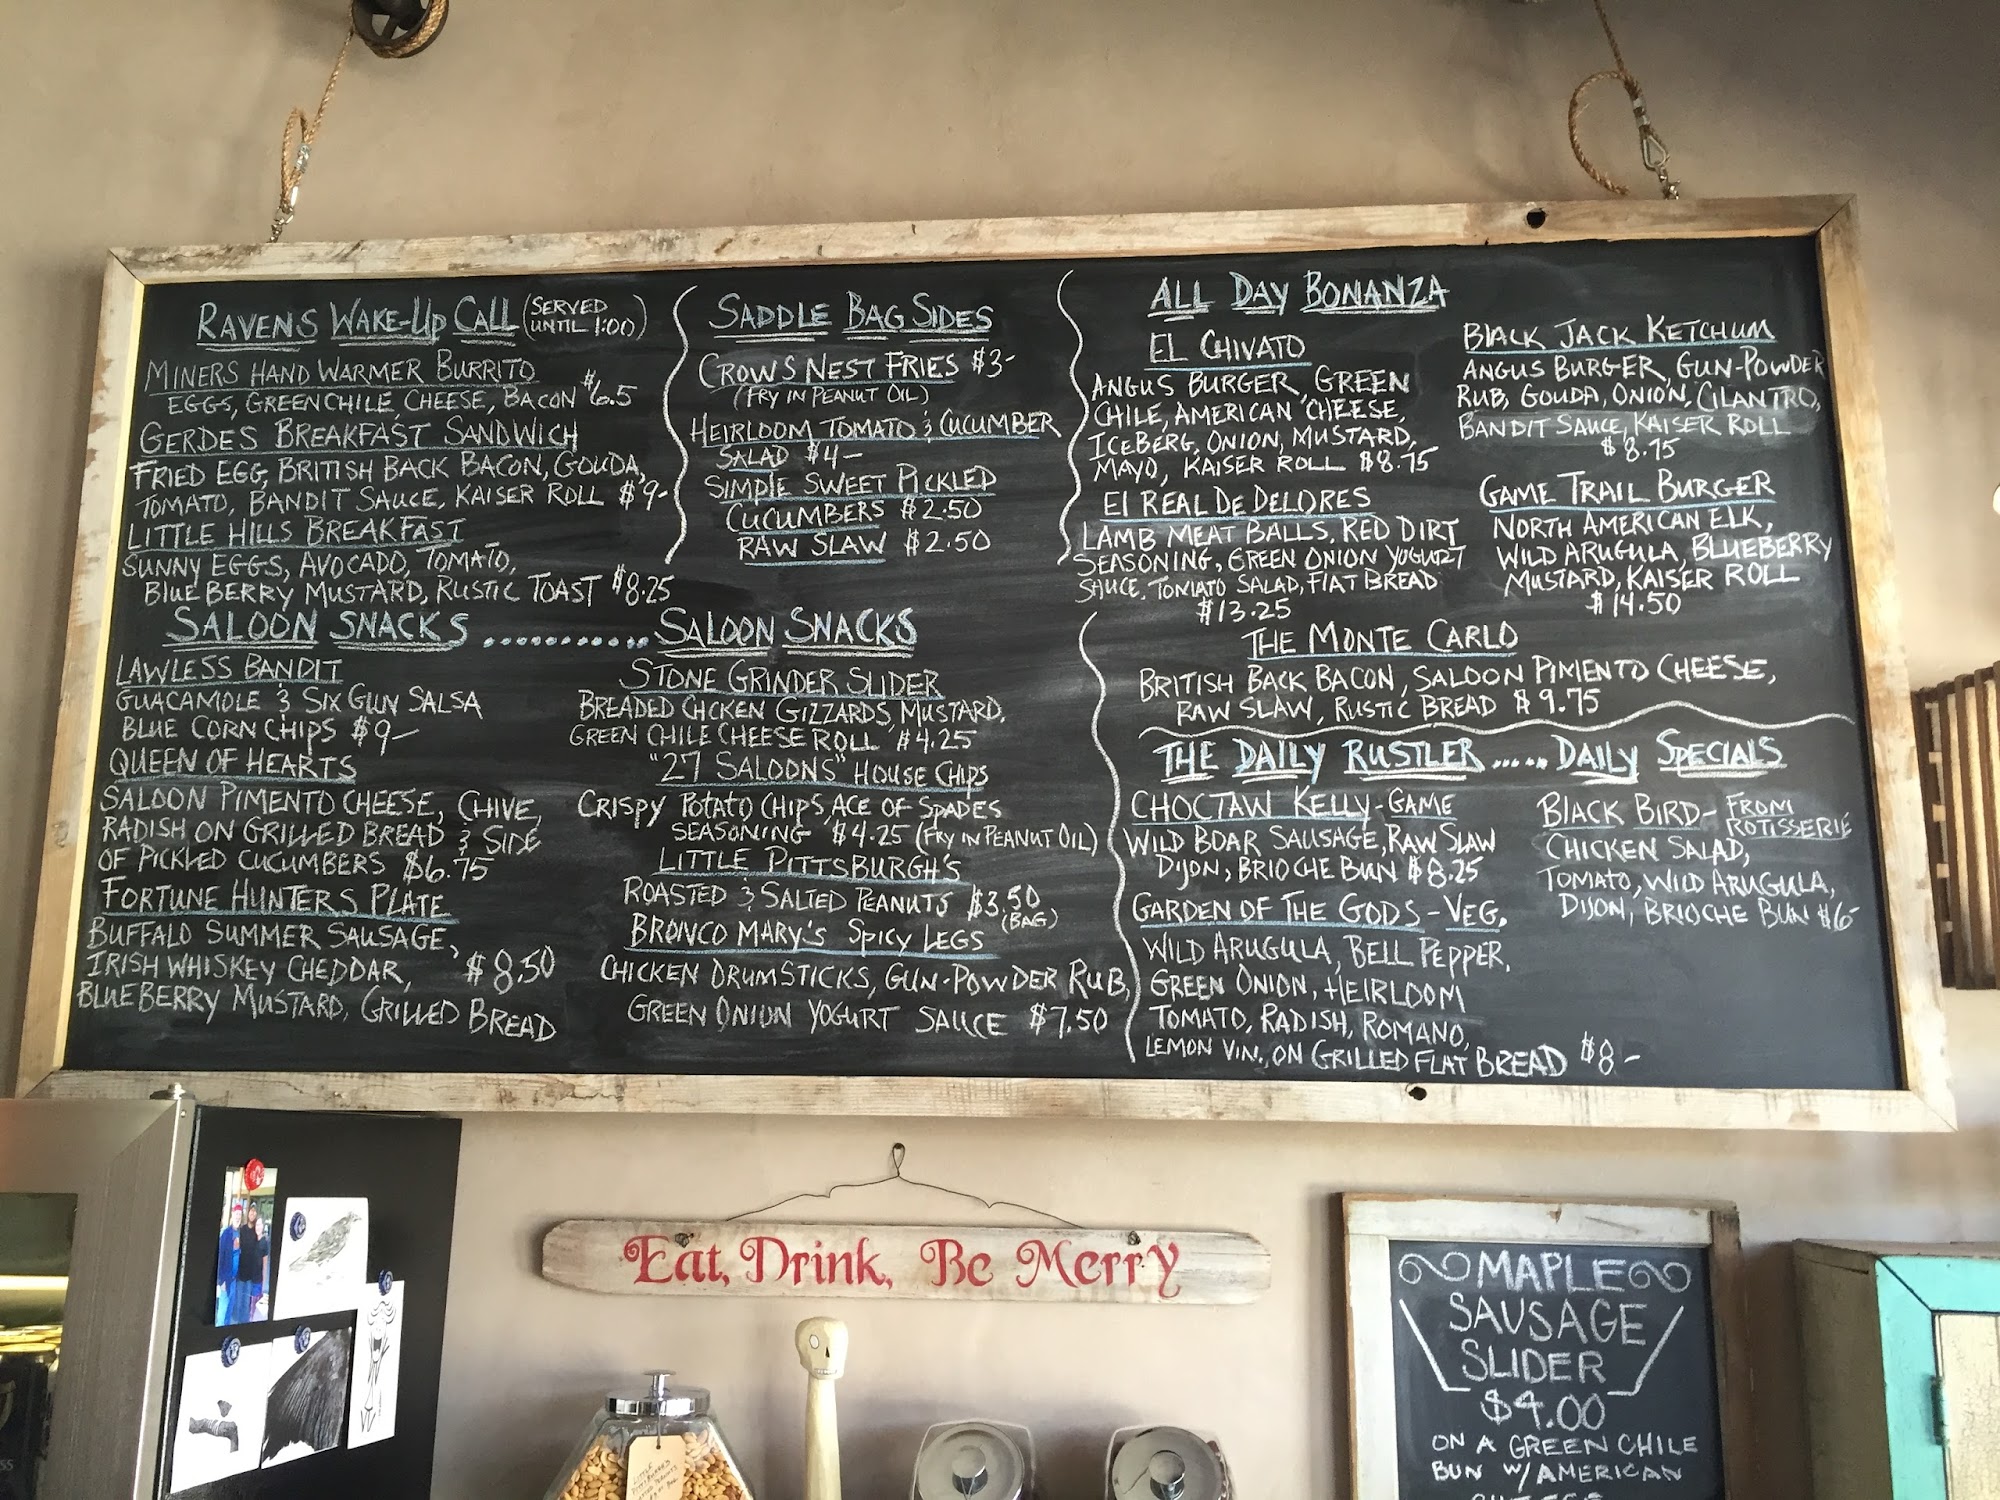 RAVENS WAKE-UP CALL (SERVED UNTIL 1:00)
MINERS HAND WARMER BURRITO
EGGS, GREEN CHILE, CHEESE, BACON $6.5
GERDES BREAKFAST SANDWICH
FRIED EGG, BRITISH BACK BACON, GOUDA,
TOMATO, BANDIT SAUCE, KAISER ROLL $9-
LITTLE HILLS BREAKFAST
SUNNY EGGS, AVOCADO, TOMATO,
BLUEBERRY MUSTARD, RUSTIC TOAST $8.25
SADDLE BAG SIDES
CROWS NEST FRIES $3-
(FRY IN PEANUT OIL)
HEIRLOOM TOMATO & CUCUMBER
SALAD $4-
SIMPLE SWEET PICKLED
CUCUMBERS $2.50
RAW SLAW $2.50
SALOON SNACKS ............ SALOON SNACKS
LAWLESS BANDIT
GUACAMOLE & SIX GUN SALSA
BLUE CORN CHIPS $9-
QUEEN OF HEARTS
SALOON PIMENTO CHEESE, CHIVE,
RADISH ON GRILLED BREAD & SIDE
OF PICKLED CUCUMBERS $6.75
FORTUNE HUNTERS PLATE
BUFFALO SUMMER SAUSAGE,
IRISH WHISKEY CHEDDAR, $8.50
BLUEBERRY MUSTARD, GRILLED BREAD
STONE GRINDER SLIDER
BREADED CHCKEN GIZZARDS, MUSTARD,
GREEN CHILE CHEESE ROLL $4.25
"27 SALOONS" HOUSE CHIPS
CRISPY POTATO CHIPS, ACE OF SPADES
SEASONING $4.25 (FRY IN PEANUT OIL)
LITTLE PITTSBURGH'S
ROASTED & SALTED PEANUTS $3.50
(BAG)
BRONCO MARY'S SPICY LEGS
CHICKEN DRUMSTICKS, GUN-POWDER RUB,
GREEN ONION YOGURT SAUCE $7.50
ALL DAY BONANZA
EL CHIVATO
ANGUS BURGER, GREEN
CHILE, AMERICAN CHEESE,
ICEBERG, ONION, MUSTARD,
MAYO, KAISER ROLL $8.75
El REAL DE DELORES
LAMB MEAT BALLS, RED DIRT
SEASONING, GREEN ONION YOGURT
SAUCE, TOMATO SALAD, FLAT BREAD
$13.25
BLACK JACK KETCHUM
ANGUS BURGER, GUN-POWDER
RUB, GOUDA, ONION, CILANTRO,
BANDIT SAUCE, KAISER ROLL
$8.75
GAME TRAIL BURGER
NORTH AMERICAN ELK,
WILD ARUGULA, BLUEBERRY
MUSTARD, KAISER ROLL
$14.50
THE MONTE CARLO
BRITISH BACK BACON, SALOON PIMENTO CHEESE,
RAW SLAW, RUSTIC BREAD $9.75
THE DAILY RUSTLER ..... DAILY SPECIALS
CHOCTAW KELLY-GAME
WILD BOAR SAUSAGE, RAW SLAW
DIJON, BRIOCHE BUN $8.25
GARDEN OF THE GODS-VEG.
WILD ARUGULA, BELL PEPPER,
GREEN ONION, HEIRLOOM
TOMATO, RADISH, ROMANO,
LEMON VIN., ON GRILLED FLAT BREAD $8-
BLACK BIRD- FROM ROTISSERIE
CHICKEN SALAD,
TOMATO, WILD ARUGULA,
DIJON, BRIOCHE BUN $6-
Eat, Drink, Be Merry
MAPLE
SAUSAGE
SLIDER
$4.00
ON A GREEN CHILE
BUN W/AMERICAN